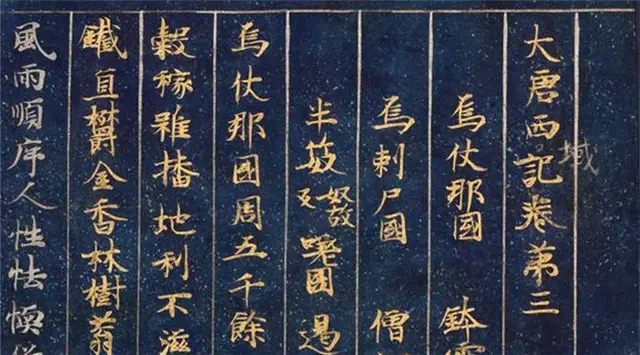 大唐西域記卷第三
烏仗那國 鉢
烏剌尸國 僧
半笯奴故反嗟國 遏
烏仗那國周五千餘
穀稼雖播地利不滋
鐵宜欝金香林樹蓊
風雨順序人性怯愞